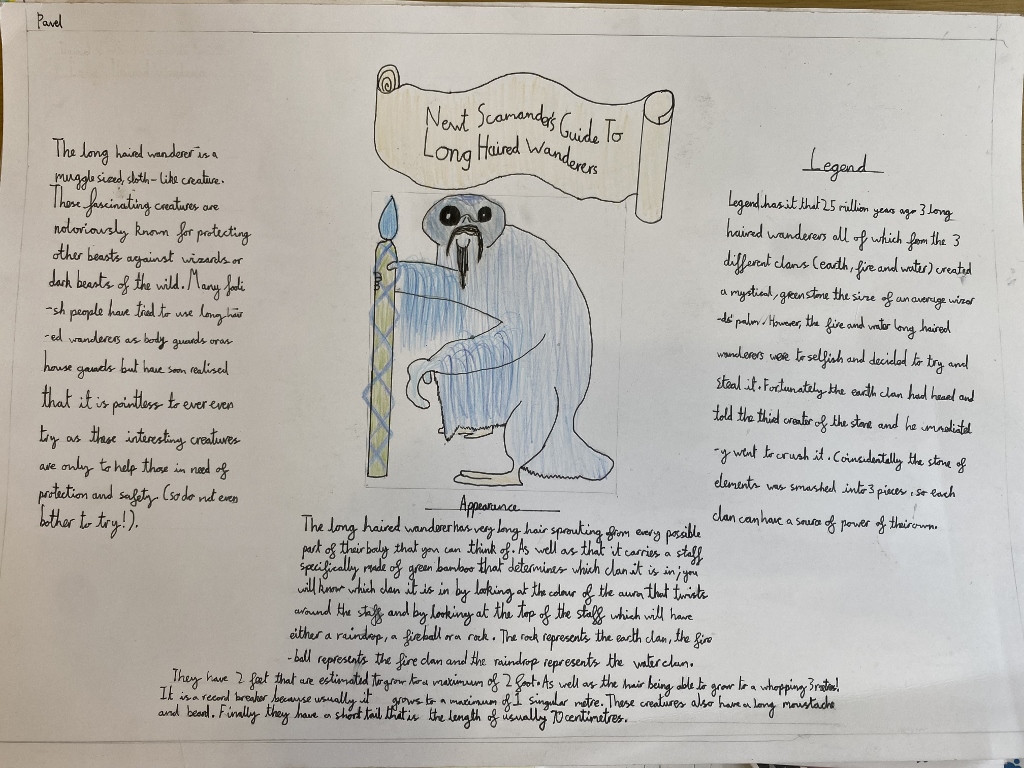 Pavel
Newt Scamander's Guide To
Long Haired Wanderers
The long haired wanderer is a
muggle sized, sloth-like creature.
These fascinating creatures are
notoriously known for protecting
other beasts against wizards or
dark beasts of the wild. Many fooli
-sh people have tried to use long hair
-ed wanderers as body guards or as
house guards but have soon realised
that it is pointless to ever even
try as these interesting creatures
are only to help those in need of
protection and safety (so do not even
bother to try!).
Legend
Legend has it that 25 million years ago 3 long
haired wanderers all of which from the 3
different clans (earth, fire and water) created
a mystical, green stone the size of an average wizar
-ds' palm. However, the fire and water long haired
wanderers were to selfish and decided to try and
steal it. Fortunately the earth clan had heard and
told the third creater of the stone and he immediatel
-y went to crush it. Coinsidentally the stone of
elements was smashed into 3 pieces, so each
clan can have a source of power of their own.
Appearance
The long haired wanderer has very long hair sprouting from every possible
part of their body that you can think of. As well as that it carries a staff
specifically made of green bamboo that determines which clan it is in; you
will know which clan it is in by looking at the colour of the aura that twists
around the staff and by looking at the top of the staff which will have
either a raindrop, a fireball or a rock. The rock represents the earth clan, the fire
-ball represents the fire clan and the raindrop represents the water clan.
They have 2 feet that are estimated to grow to a maximum of 2 foot. As well as the hair being able to grow to a whopping 3 metres!
It is a record breaker because usually it grows to a maximum of 1 singular metre. These creatures also have a long moustache
and beard. Finally they have a short tail that is the length of usually 70 centimetres.